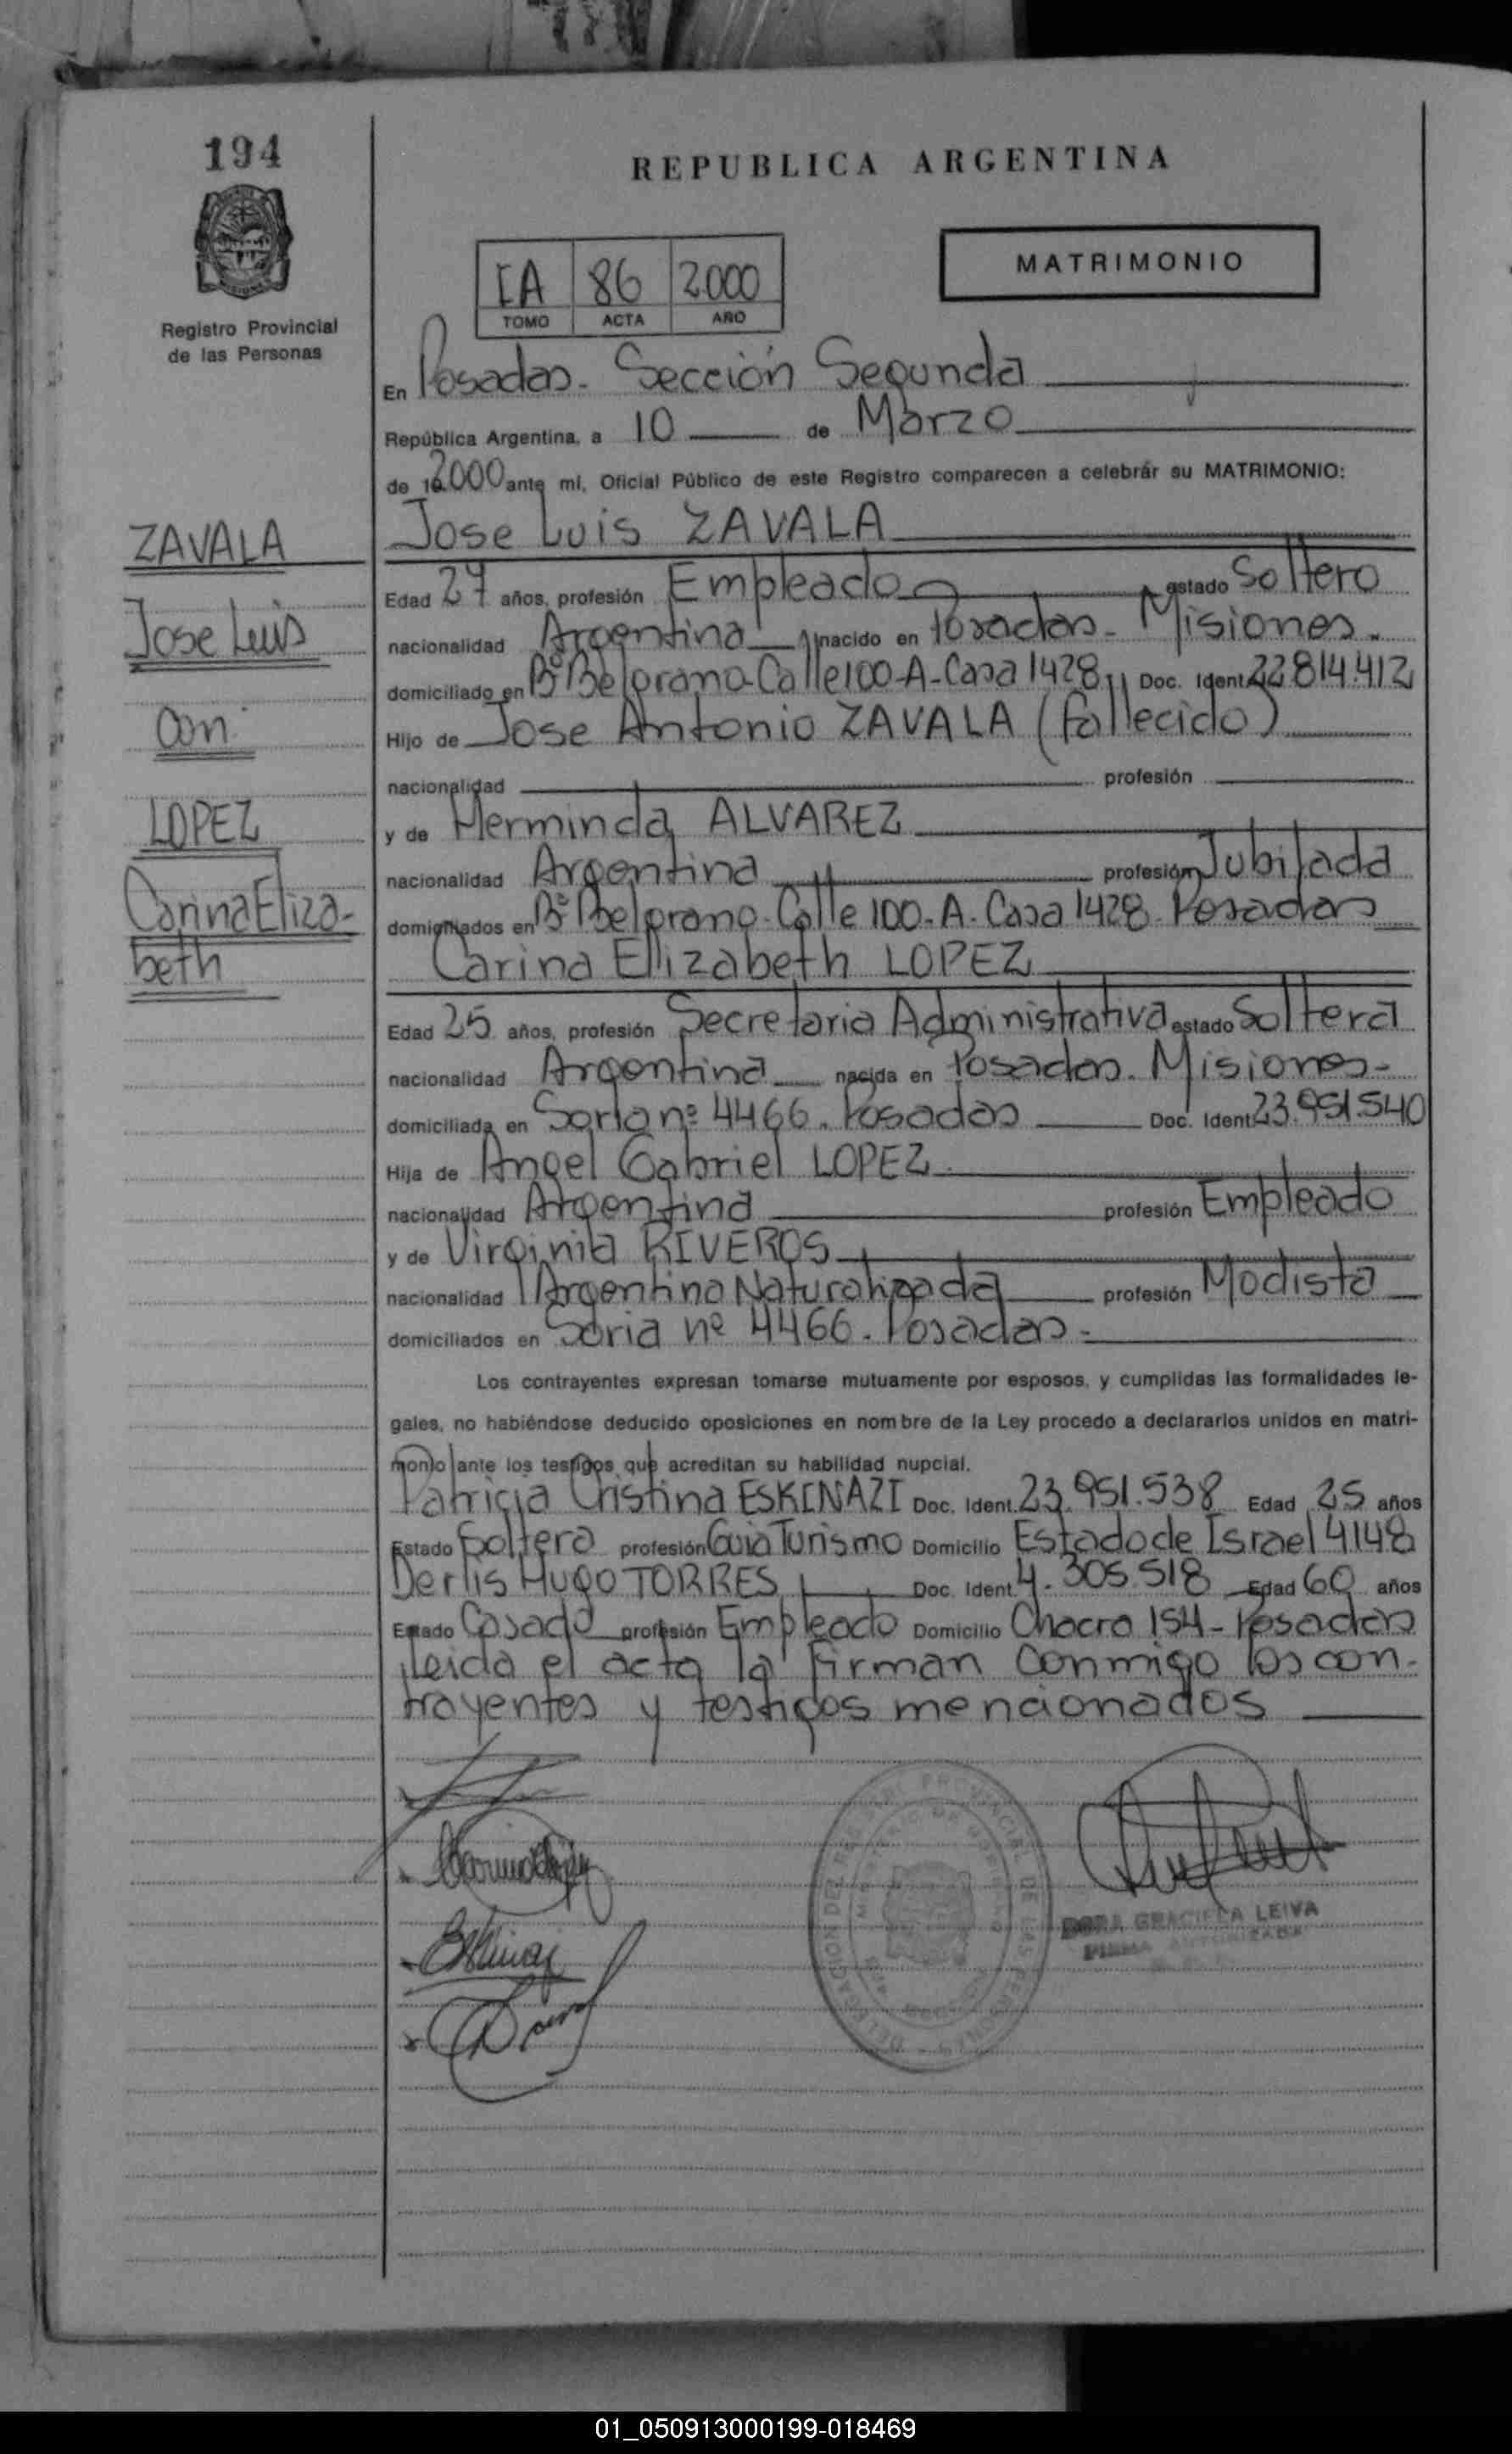 194
REPUBLICA ARGENTINA
MATRIMONIO
IA 86 2000
TOMO ACTA AÑO
Registro Provincial
de las Personas
En Posadas. Sección Segunda
República Argentina, a 10 de Marzo
de 2000 ante mí, Oficial Público de este Registro comparecen a celebrar su MATRIMONIO:
ZAVALA
Jose Luis
con
LOPEZ
Carina Eliza-
beth
Jose Luis ZAVALA
Edad 27 años, profesión Empleado estado Soltero
nacionalidad Argentina nacido en Posadas - Misiones.
domiciliado en Bº Belgrano-Calle 100-A-Casa 1428 Doc. Ident. 22.814.412
Hijo de Jose Antonio ZAVALA (fallecido)
nacionalidad profesión
y de Herminda ALVAREZ
nacionalidad Argentina profesión Jubilada
domiciliados en Bº Belgrano-Calle 100-A-Casa 1428-Posadas
Carina Elizabeth LOPEZ
Edad 25 años, profesión Secretaria Administrativa estado Soltera
nacionalidad Argentina nacida en Posadas. Misiones-
domiciliada en Soria nº 4466. Posadas Doc. Ident. 23.951.540
Hija de Angel Gabriel LOPEZ
nacionalidad Argentina profesión Empleado
y de Virginia RIVEROS
nacionalidad Argentina Naturalizada profesión Modista
domiciliados en Soria nº 4466. Posadas-
Los contrayentes expresan tomarse mutuamente por esposos, y cumplidas las formalidades le-
gales, no habiéndose deducido oposiciones en nombre de la Ley procedo a declararlos unidos en matri-
monio ante los testigos que acreditan su habilidad nupcial.
Patricia Cristina ESKENAZI Doc. Ident. 23.951.538 Edad 25 años
Estado Soltera profesión Guia Turismo Domicilio Estado de Israel 4148
Derlis Hugo TORRES Doc. Ident. 4.305.518 Edad 60 años
Estado Casado profesión Empleado Domicilio Chacra 154-Posadas
leida el acta la firman conmigo los con-
trayentes y testigos mencionados
DORA GRACIELA LEIVA
FIRMA AUTORIZADA
01_050913000199-018469